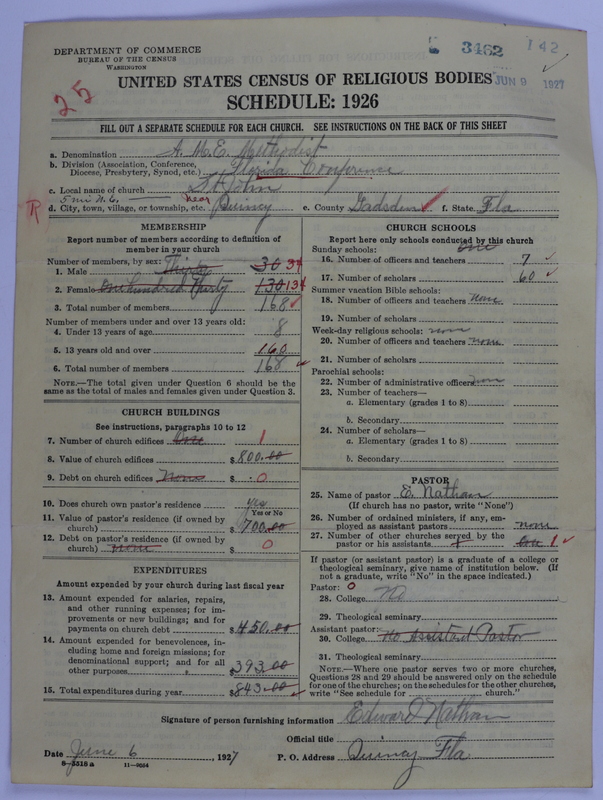 DEPARTMENT OF COMMERCE
BUREAU OF THE CENSUS
WASHINGTON
3462 142
JUN 9 1927
UNITED STATES CENSUS OF RELIGIOUS BODIES
SCHEDULE: 1926
25
FILL OUT A SEPARATE SCHEDULE FOR EACH CHURCH. SEE INSTRUCTIONS ON THE BACK OF THIS SHEET
a. Denomination A. M. E. Methodist
b. Division (Association, Conference, Diocese, Presbytery, Synod, etc.) Florida Conference
c. Local name of church St John
5 mi N. E. near
R d. City, town, village, or township, etc. Quincy e. County Gadsden f. State Fla
MEMBERSHIP
Report number of members according to definition of member in your church
Number of members, by sex:
1. Male Thirty 30 34
2. Female One hundred Thirty 130 134
3. Total number of members 168
Number of members under and over 13 years old:
4. Under 13 years of age 8
5. 13 years old and over 160
6. Total number of members 168
NOTE.—The total given under Question 6 should be the same as the total of males and females given under Question 3.
CHURCH BUILDINGS
See instructions, paragraphs 10 to 12
7. Number of church edifices One 1
8. Value of church edifices $800.00
9. Debt on church edifices None $ 0
10. Does church own pastor's residence yes
Yes or No
11. Value of pastor's residence (if owned by church) $700.00
12. Debt on pastor's residence (if owned by church) none $ 0
EXPENDITURES
Amount expended by your church during last fiscal year
13. Amount expended for salaries, repairs, and other running expenses; for improvements or new buildings; and for payments on church debt $450.00
14. Amount expended for benevolences, including home and foreign missions; for denominational support; and for all other purposes $393.00
15. Total expenditures during year $843.00
CHURCH SCHOOLS
Report here only schools conducted by this church
Sunday schools: one
16. Number of officers and teachers 7
17. Number of scholars 60
Summer vacation Bible schools:
18. Number of officers and teachers none
19. Number of scholars
Week-day religious schools: none
20. Number of officers and teachers none
21. Number of scholars
Parochial schools:
22. Number of administrative officers none
23. Number of teachers—
a. Elementary (grades 1 to 8)
b. Secondary
24. Number of scholars—
a. Elementary (grades 1 to 8)
b. Secondary
PASTOR
25. Name of pastor E. Nathan
(If church has no pastor, write "None")
26. Number of ordained ministers, if any, employed as assistant pastors none
27. Number of other churches served by the pastor or his assistants 1
If pastor (or assistant pastor) is a graduate of a college or theological seminary, give name of institution below. (If not a graduate, write "No" in the space indicated.)
Pastor: 0
28. College No
29. Theological seminary
Assistant pastor:
30. College No Assistant Pastor
31. Theological seminary
NOTE.—Where one pastor serves two or more churches, Questions 28 and 29 should be answered only on the schedule for one of the churches; on the schedules for the other churches, write "See schedule for church."
Signature of person furnishing information Edward Nathan
Official title
Date June 6, 1927 P. O. Address Quincy Fla
8-5518 a 11-9554